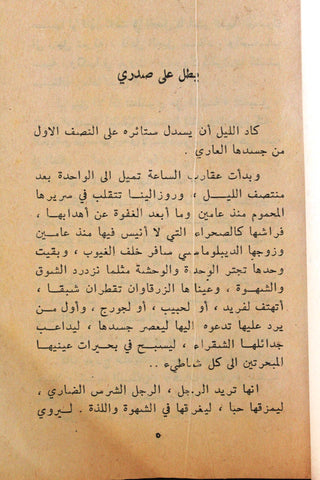 بطل على صدري
كاد الليل أن يسدل ستائره على النصف الاول
من جسدها العاري .
وبدأت عقارب الساعة تميل الى الواحدة بعد
منتصف الليل ، وروزالينا تتقلب في سريرها
المحموم منذ عامين وما أبعد الغفوة عن أهدابها ،
فراشها كالصحراء التي لا أنيس فيها منذ عامين
وزوجها الديبلوماسي سافر خلف الغيوب ، وبقيت
وحدها تجتر الوحدة والوحشة مثلما نزدرد الشوق
والشهوة ، وعيناها الزرقاوان تقطران شبقا ،
أتهتف لفريد ، أو لحبيب ، أو لجورج ، وأول من
يرد عليها تدعوه اليها ليعصر جسدها ، ليداعب
جدائلها الشقراء ، ليسبح في بحيرات عينيها
المبحرتين الى كل شاطىء ..
انها تريد الرجل ، الرجل الشرس الضاري ،
ليمزقها حبا ، ليغرقها في الشهوة واللذة . ليروي
٥